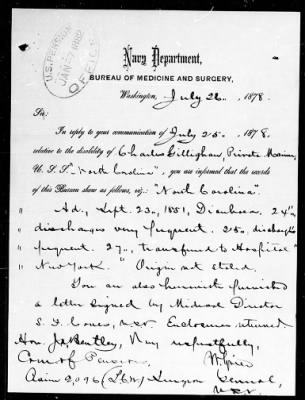 U.S. PENSION
JAN 7 1882
OFFICE
Navy Department,
BUREAU OF MEDICINE AND SURGERY,
Washington, July 26, 1878.
Sir:
In reply to your communication of July 25, 1878,
relative to the disability of Charles Gillighan, Private Marine,
U.S.S. "North Carolina", you are informed that the records
of this Bureau show as follows, viz: "North Carolina".
" Ad. Sept. 23, 1851, Diarrhoea. 24th
" discharges very frequent. 25, discharges
" frequent. 27, transferred to Hospital
" New York." Origin not stated.
You are also herewith furnished
a letter signed by Medical Director
Endorsement returned.
Hon. J. A. Bentley, Very respectfully,
Com. of Pensions.
Surgeon General,
U.S.N.